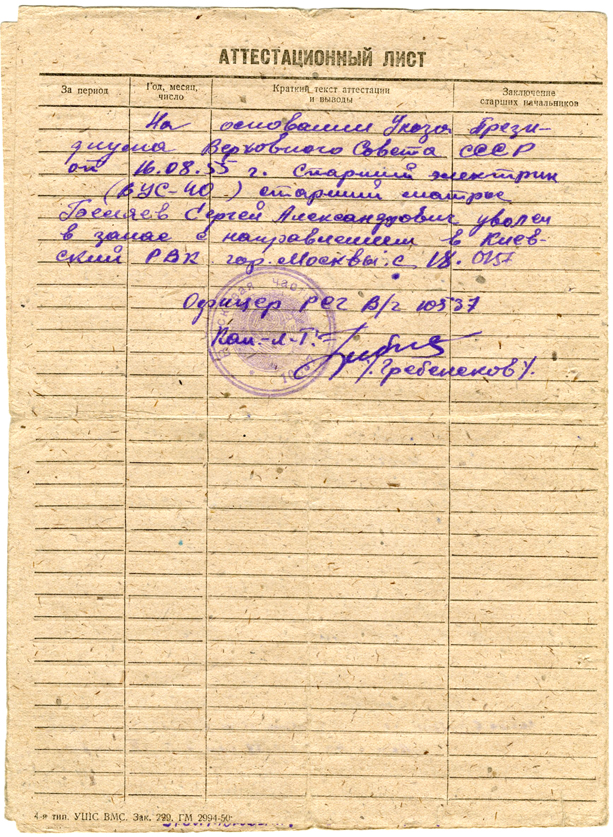 АТТЕСТАЦИОННЫЙ ЛИСТ
За период
Год, месяц, число
Краткий текст аттестации и выводы
Заключение старших начальников
На основании Указа Прези-
диума Верховного Совета СССР
от 16.08.55 г. Старший электрик
(ВУС-40) старший матрос
Сергей Александрович уволен
в запас с направлением в Киев-
ский РВК гор. Москвы с 18.
Офицер РСГ В/г 10537
Кап.-л-т
/Гребенеков/.
4-я тип. УПС ВМС. Зак. 299. ГМ 2994-50